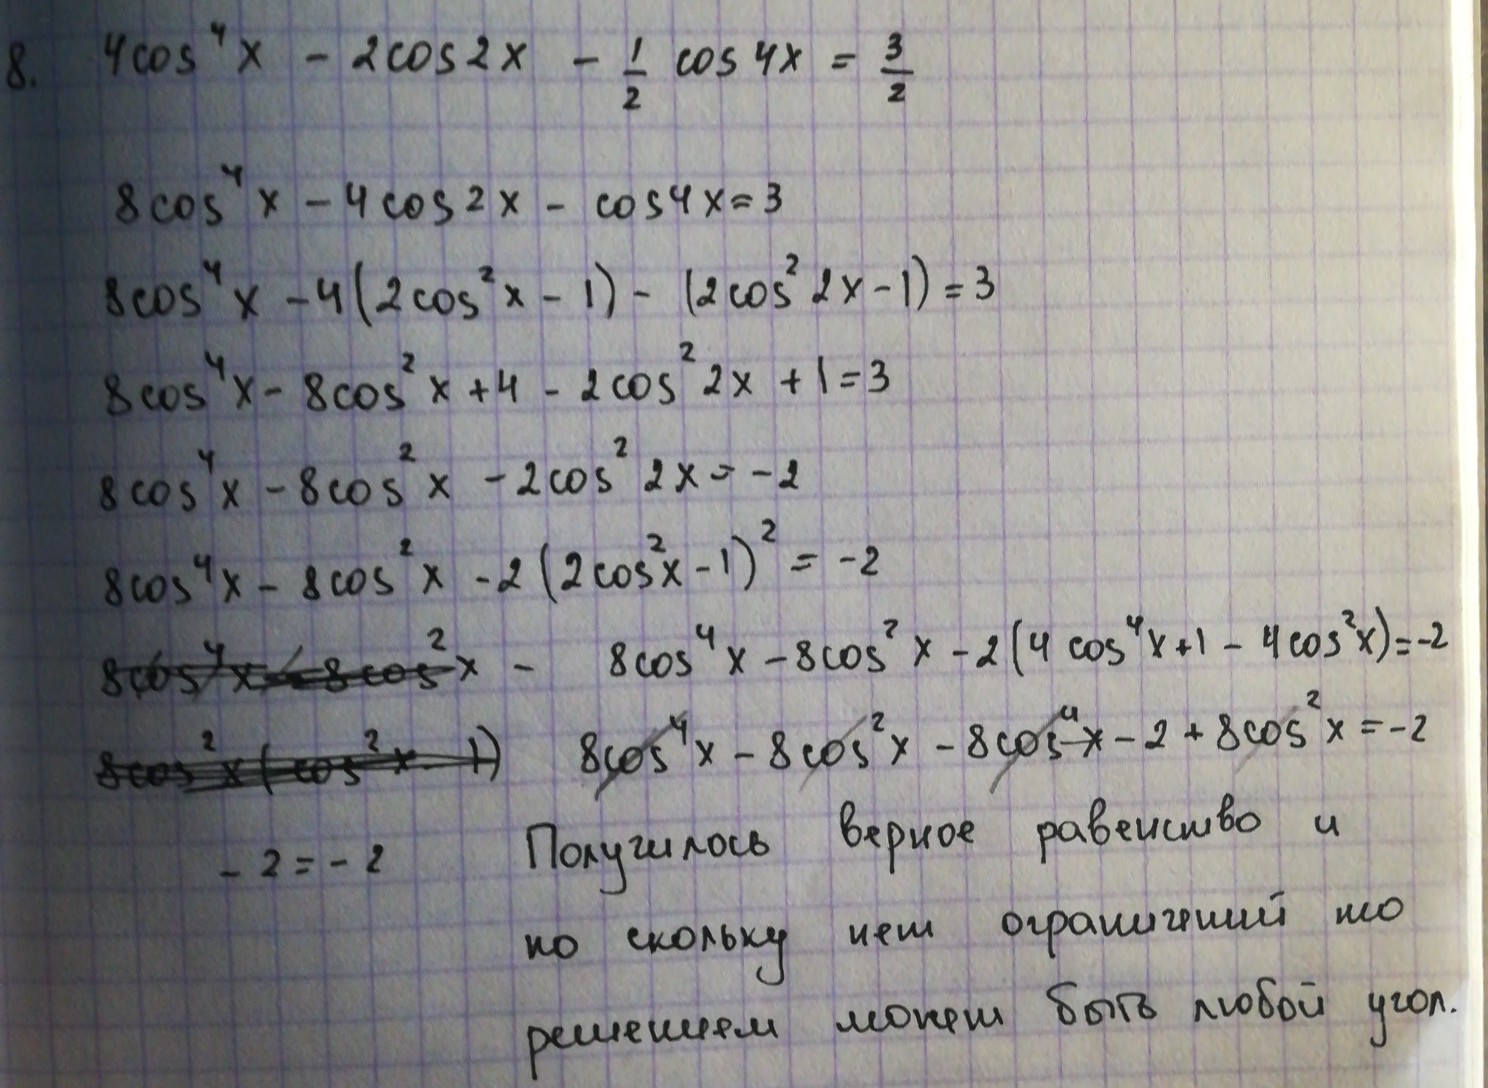 8. 4cos⁴x - 2cos2x - 1/2 cos4x = 3/2
8cos⁴x - 4cos2x - cos4x = 3
8cos⁴x - 4(2cos²x - 1) - (2cos²2x - 1) = 3
8cos⁴x - 8cos²x + 4 - 2cos²2x + 1 = 3
8cos⁴x - 8cos²x - 2cos²2x = -2
8cos⁴x - 8cos²x - 2(2cos²x - 1)² = -2
8cos⁴x - 8cos²x - 8cos⁴x - 8cos²x - 2(4cos⁴x + 1 - 4cos²x) = -2
8cos²x(cos²x - 1) 8cos⁴x - 8cos²x - 8cos⁴x - 2 + 8cos²x = -2
-2 = -2 Получилось верное равенство и
по скольку нет ограничений то
решением может быть любой угол.